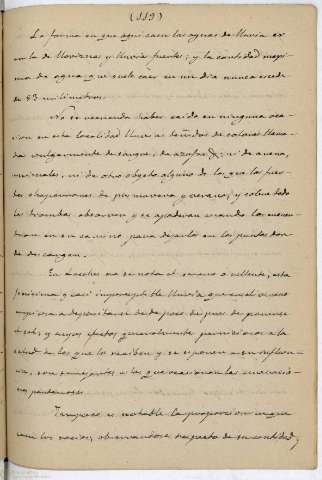 (119)
La forma en que aqui caen las aguas de lluvia es
en la de lloviznas y lluvia fuertes; y la cantidad maxi-
ma de agua que suele caer en un dia nunca escede
de 83 milimetros.
No se recuerda haber caido en ninguna oca-
sion en esta localidad lluvia teñidas de colores llama-
da vulgarmente de sangre, de azufre &; ni de arena,
ni de otro objeto alguno de los que las fuer-
tes chaparrones de primavera y verano; y sobre todo
las trombas absorven y se apoderan cuando los encuen-
tran en su camino, para dejarlos en los puntos don-
de descargan.
En no se nota el sereno ó relente, esta
finisima y casi imperceptible lluvia que en el verano
empieza a depositarse de poco despues de ponerse
el sol; y cuyos efectos generalmente perniciosos a la
salud de los que lo reciben y se esponen a su influen-
cia, son semejantes a los que ocasionan las
pantanosas.
Tampoco es notable la proporcion en que
caen los rocios, observandose respecto de su cantidad,